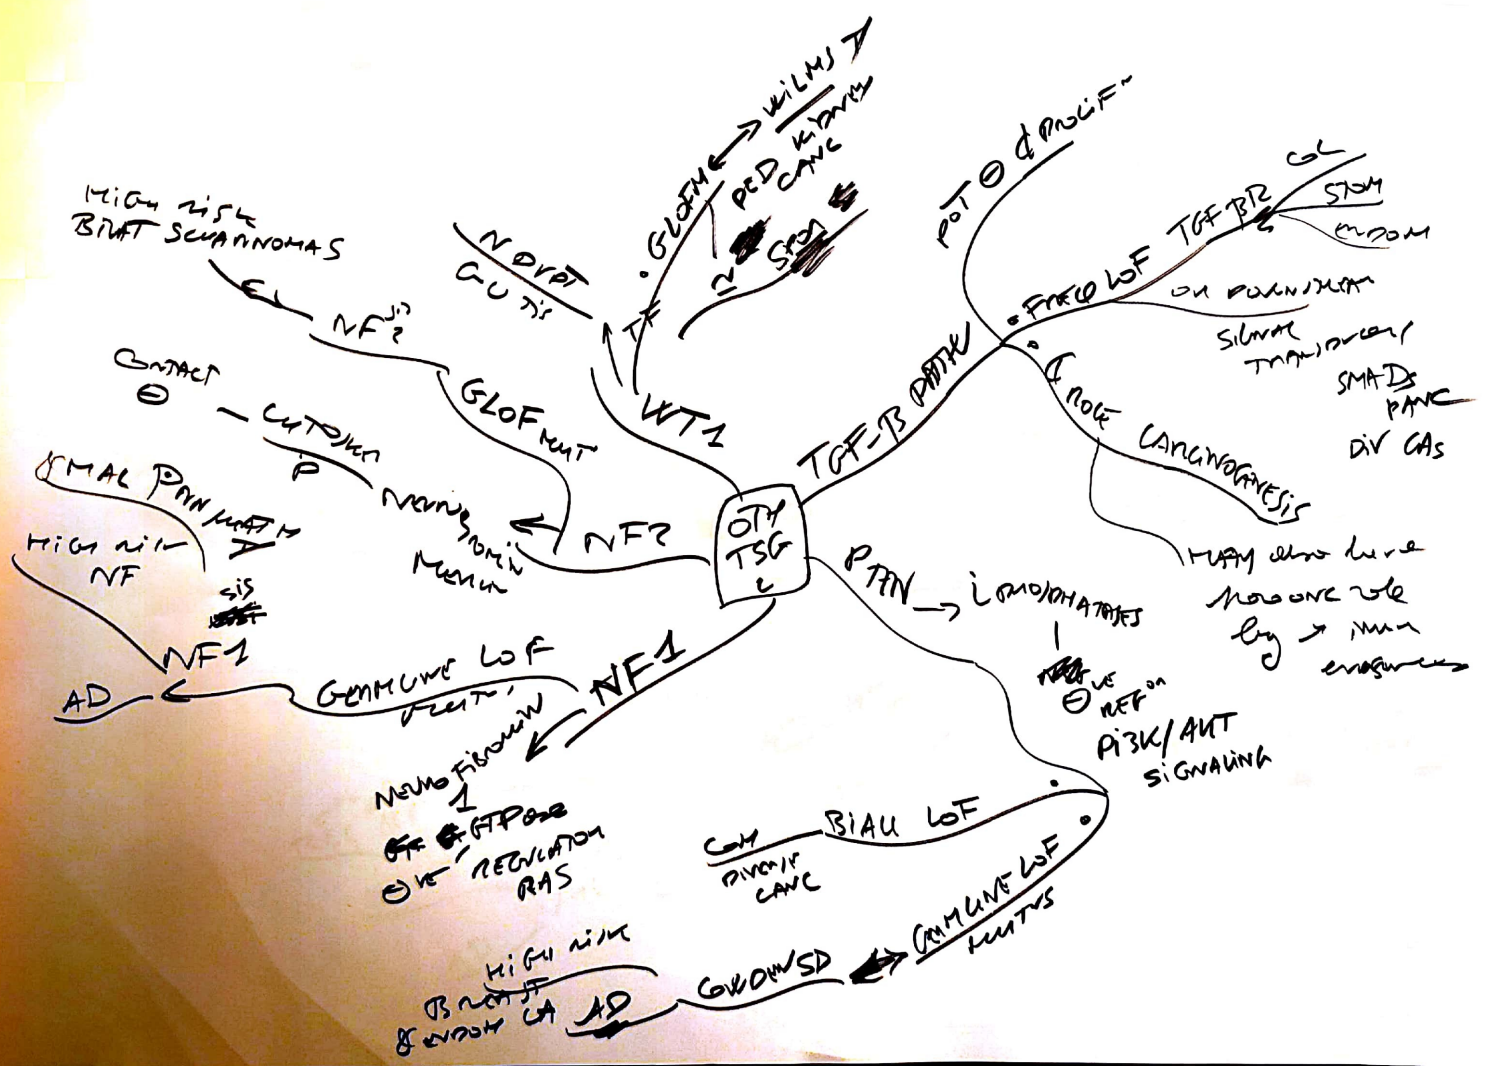 OTH
TSG
WT1
TF
N DVPT
GU TIS
GLOFM
WILMS T
PED KIDNEY
CANC
SPOR
TGF-B PATHW
POT ⊖ ¢ PROLIF~
FREQ LOF
TGF BR
COL
STOM
ENDOM
OR DOWNSTREAM
SIGNAL
TRANSDUCERS
SMADs
PANC
DIV CAs
¢ ROLE CARCINOGENESIS
MAY also have
PROONC role
by → imm
evasiveness
PTEN → LPHOSPHATASES
⊖VE
REG on
Pi3K/AKT
SIGNALING
BIALL LOF
COM
DIVERSE
CANC
GERMLINE LOF
MUTNS
COWDEN SD
AD
HIGH RISK
BREAST
& ENDOM CA
NF1
NEUROFIBROMIN
1
GTPase
⊖VE REGULATOR
RAS
GERMLINE LOF
MUT
NF1
AD
HIGH RISK
NF
SIS
NF2
NEUROFIBROMIN
MERLIN
CYTOSK
P
CONTACT
⊖
GLOF MUT
NF 2
HIGH RISK
BILAT SCHWANNOMAS